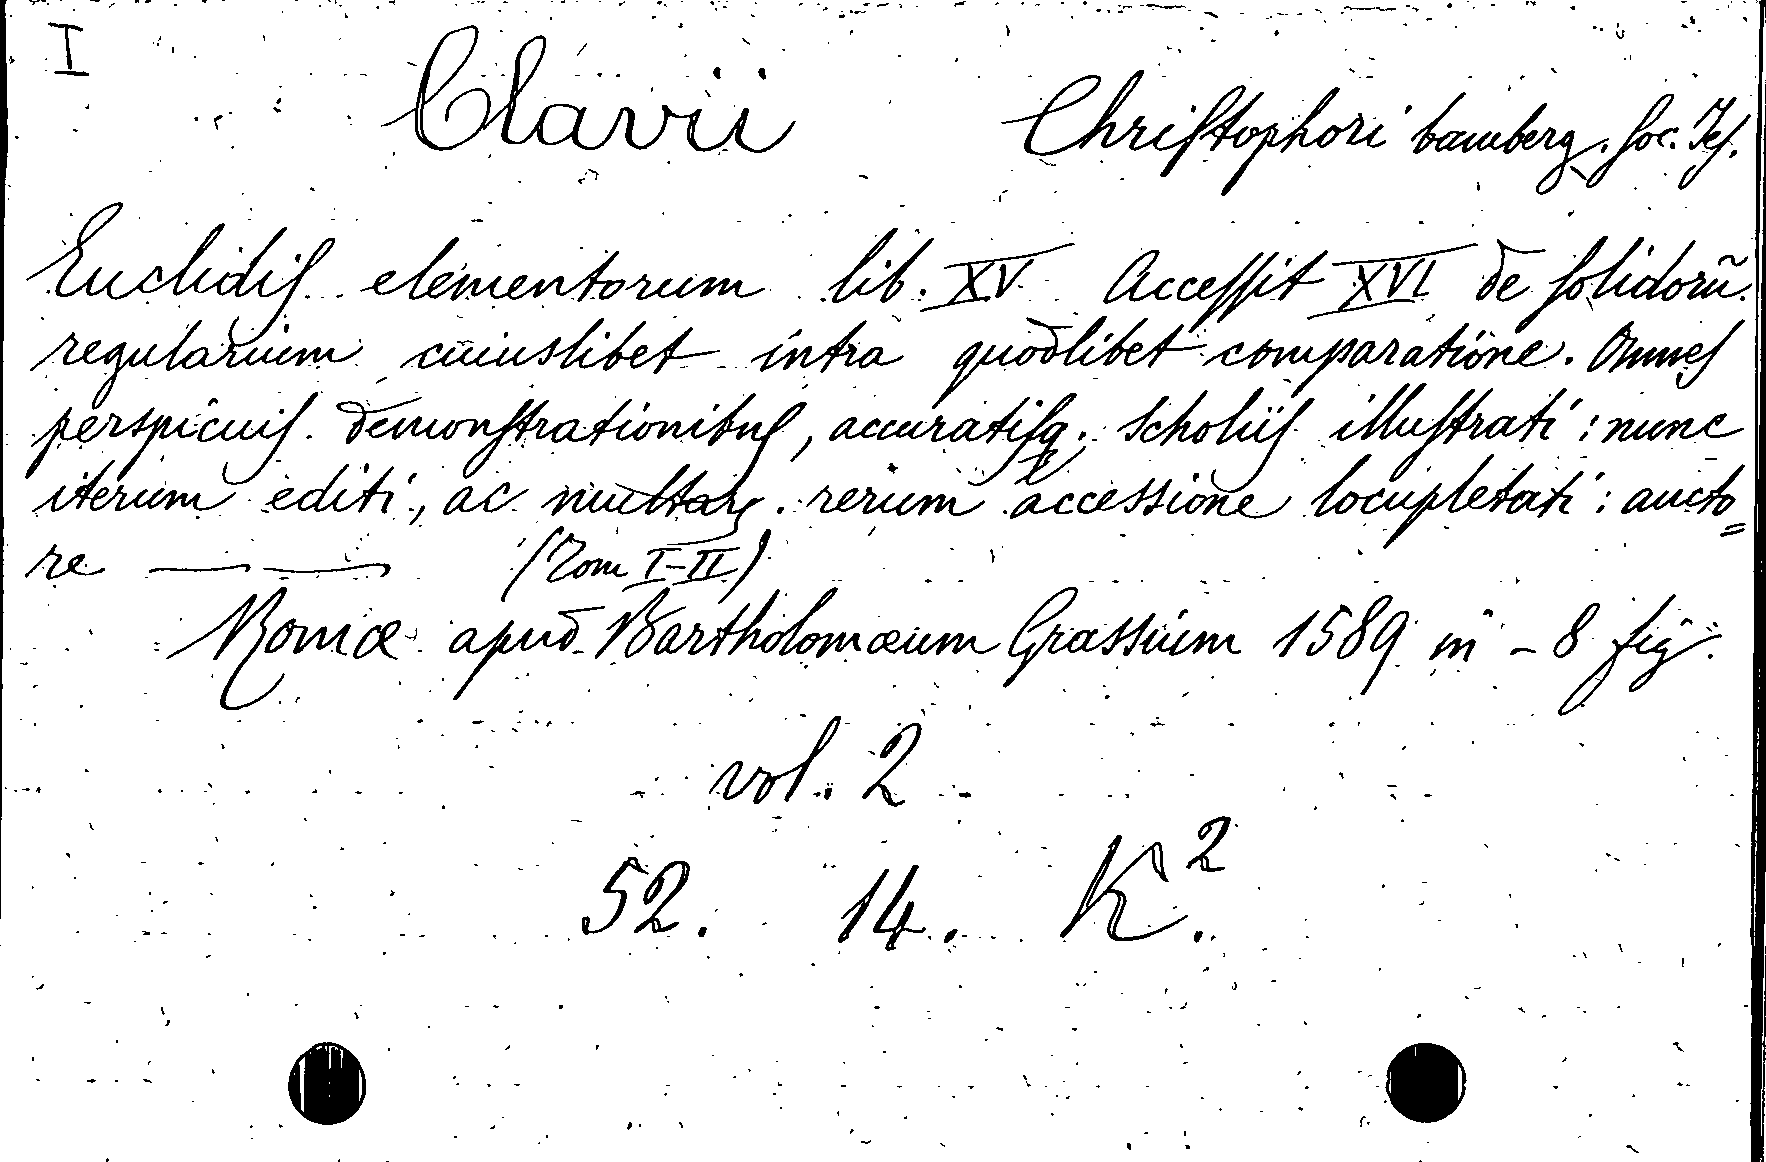 I
Clavii Chriſtophori bamberg. ſoc. Jeſ.
Euclidiſ elementorum lib. XV Acceſſit XVI de ſolidorũ
regularium cuiuslibet intra quodlibet comparatione. Omneſ
perspicuiſ demonſtrationibuſ, accuratiſq; scholiiſ illuſtrati: nunc
iterum editi, ac multar. rerum accessione locupletati: aucto=
re —— (Tom I-II)
Romæ apud Bartholomæum Grassium 1589 in - 8 fig.
vol. 2
52. 14. K².